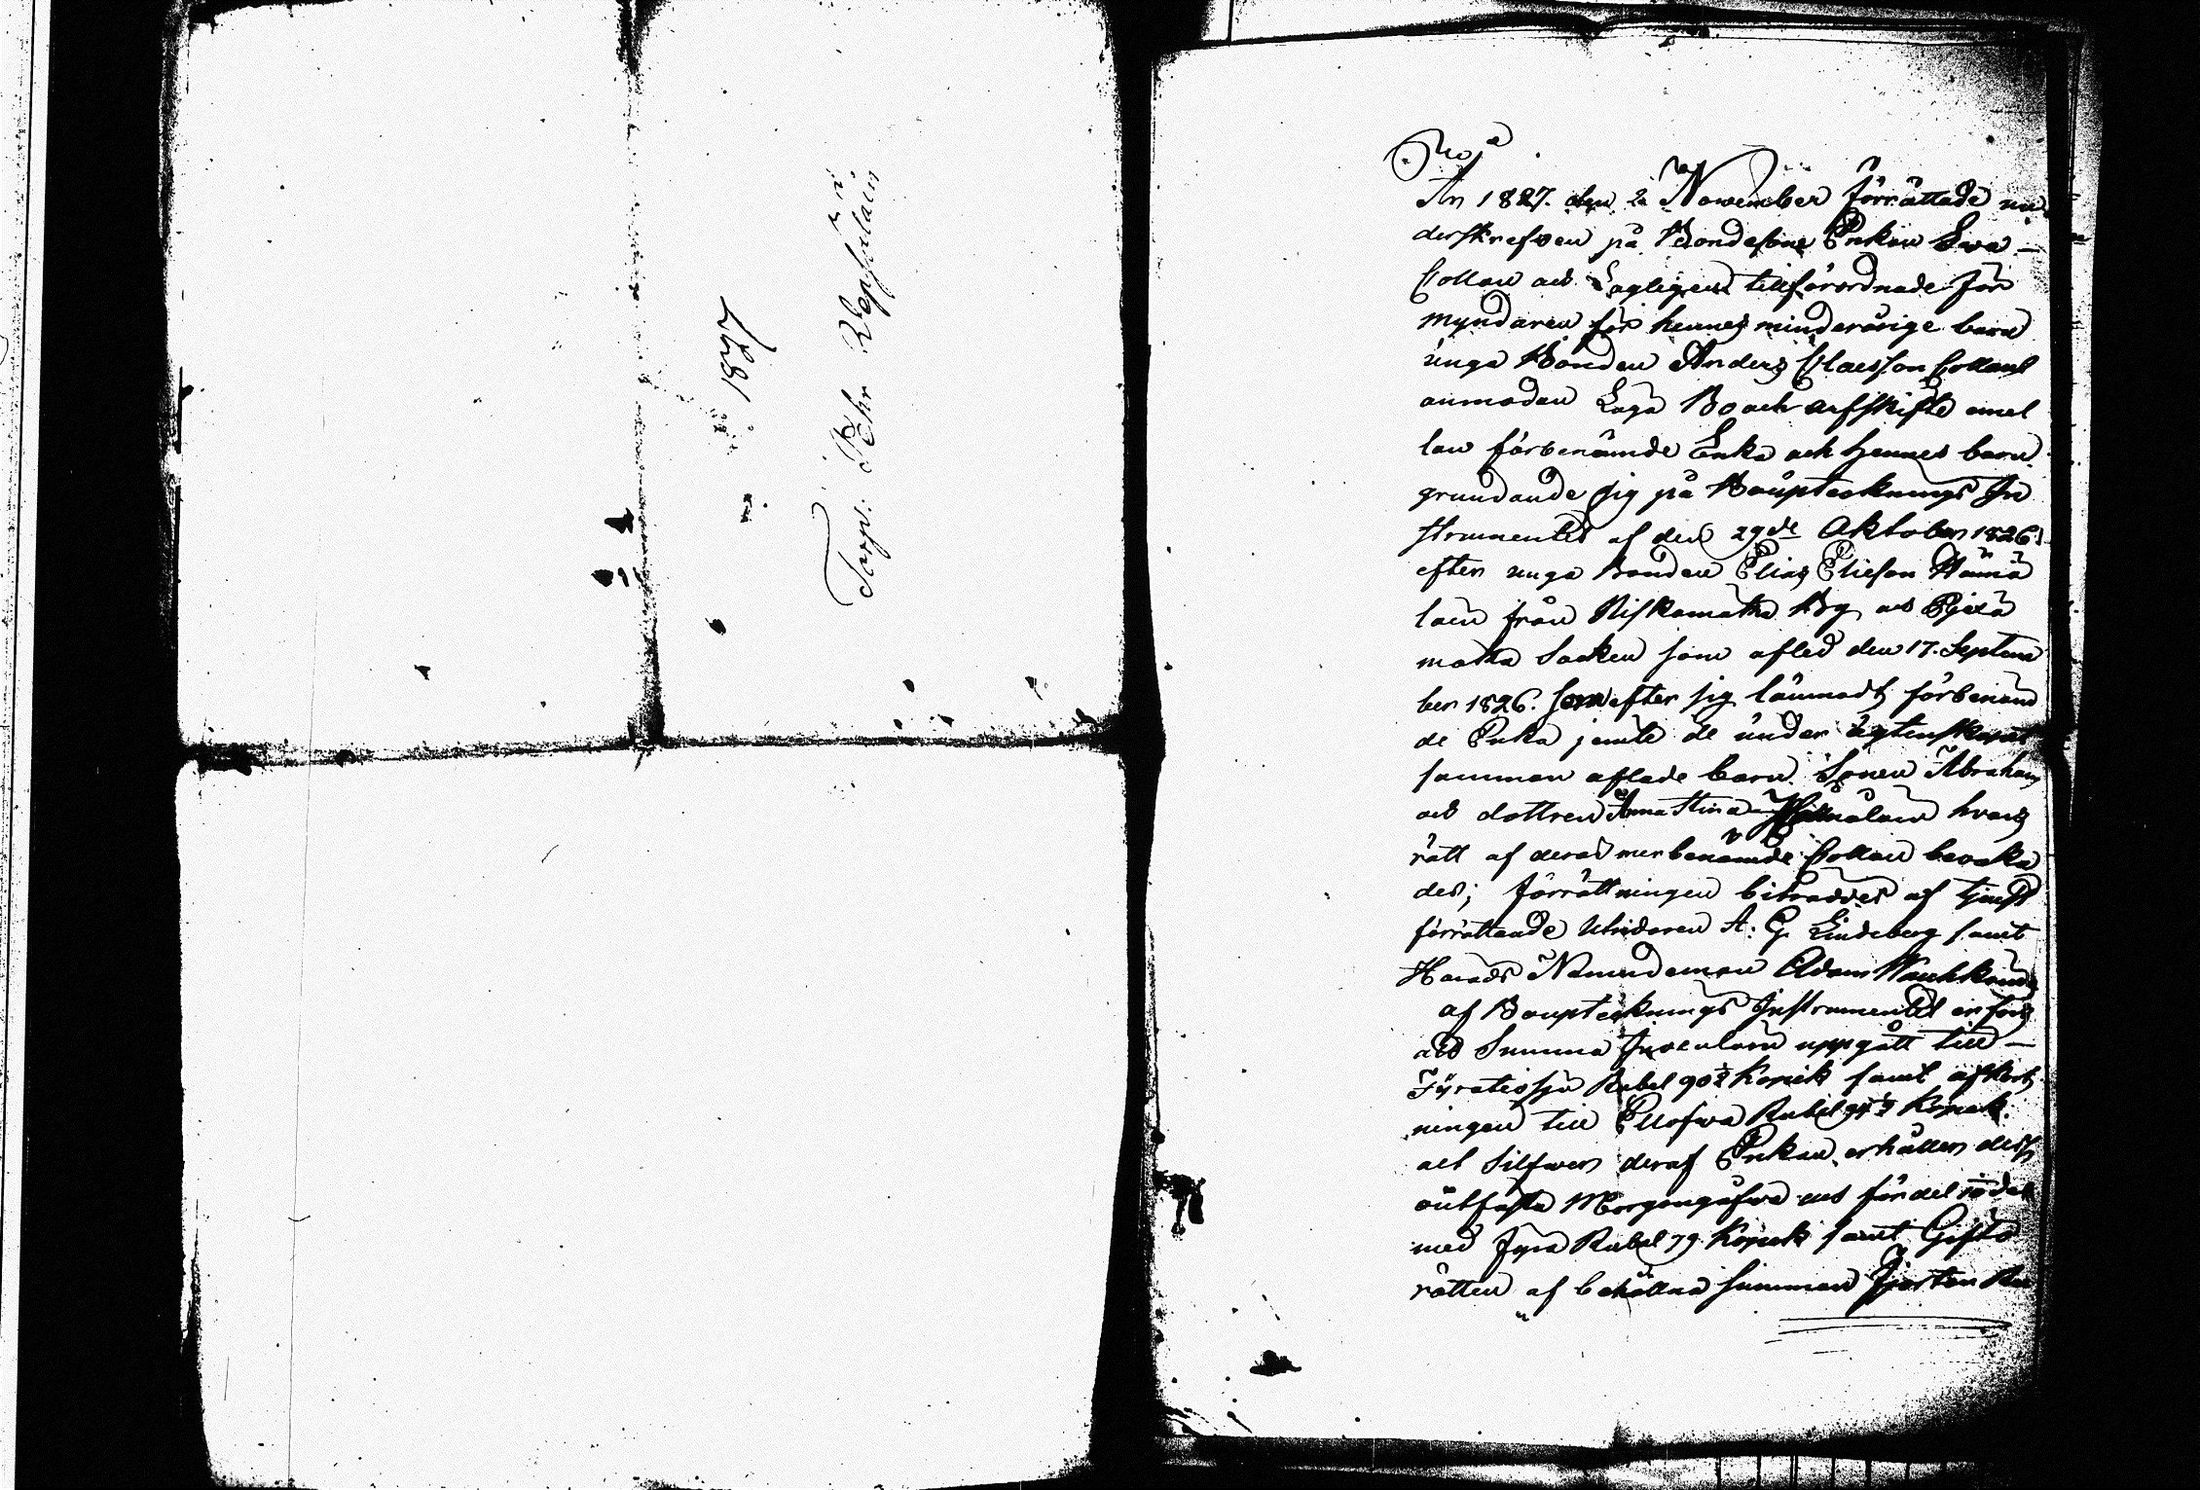 1827
Torp. Pehr Repsilain
No
År 1827. den 2 November förrättade un
derskrefven på Bondesone Enkan Ewa
Collan ock Lagligen tillförordnade för
myndaren för hennes minderårige barn
unga Bonden Anders Claesson Collans
anmodan Laga Bo och arfskifte emel
lan förbenämde Enka och hennes barn
grundande sig på Boupteknings In
strumentet af den 29de Oktober 1826.
efter unga Bonden Elias Eliesson Hämä
lain från Niskamatka By ock
matka Socken som afled den 17. Septem
ber 1826. som efter sig lämnadt förbenäm
de Enka jemte de under ägtenskapet
samman aflade barn. Sonen Abraham
ock dottren Anna Stina Hämälain hvars
rätt af deras merbenämde Collan bevaka
des; förrättningen biträddes af tjenst
förrättande Uhrideren A: G Lindeberg samt
Harads Nämndeman Adam
af Boupteknings Instrumentet erfors
att Summa Inventarii uppgått till
Fyratiosju Rubel 90 2/7 Kopek samt afkort
ningen till Ellofwa Rubel 94 2/7 Kopek.
alt Silfwer deraf Enkan erhåller dess
outfästa Morgongåfwa ens fördel 10de
med fyra Rubel 79 Kopek samt Gifto
rätten af behållna summan Fjorton Ru